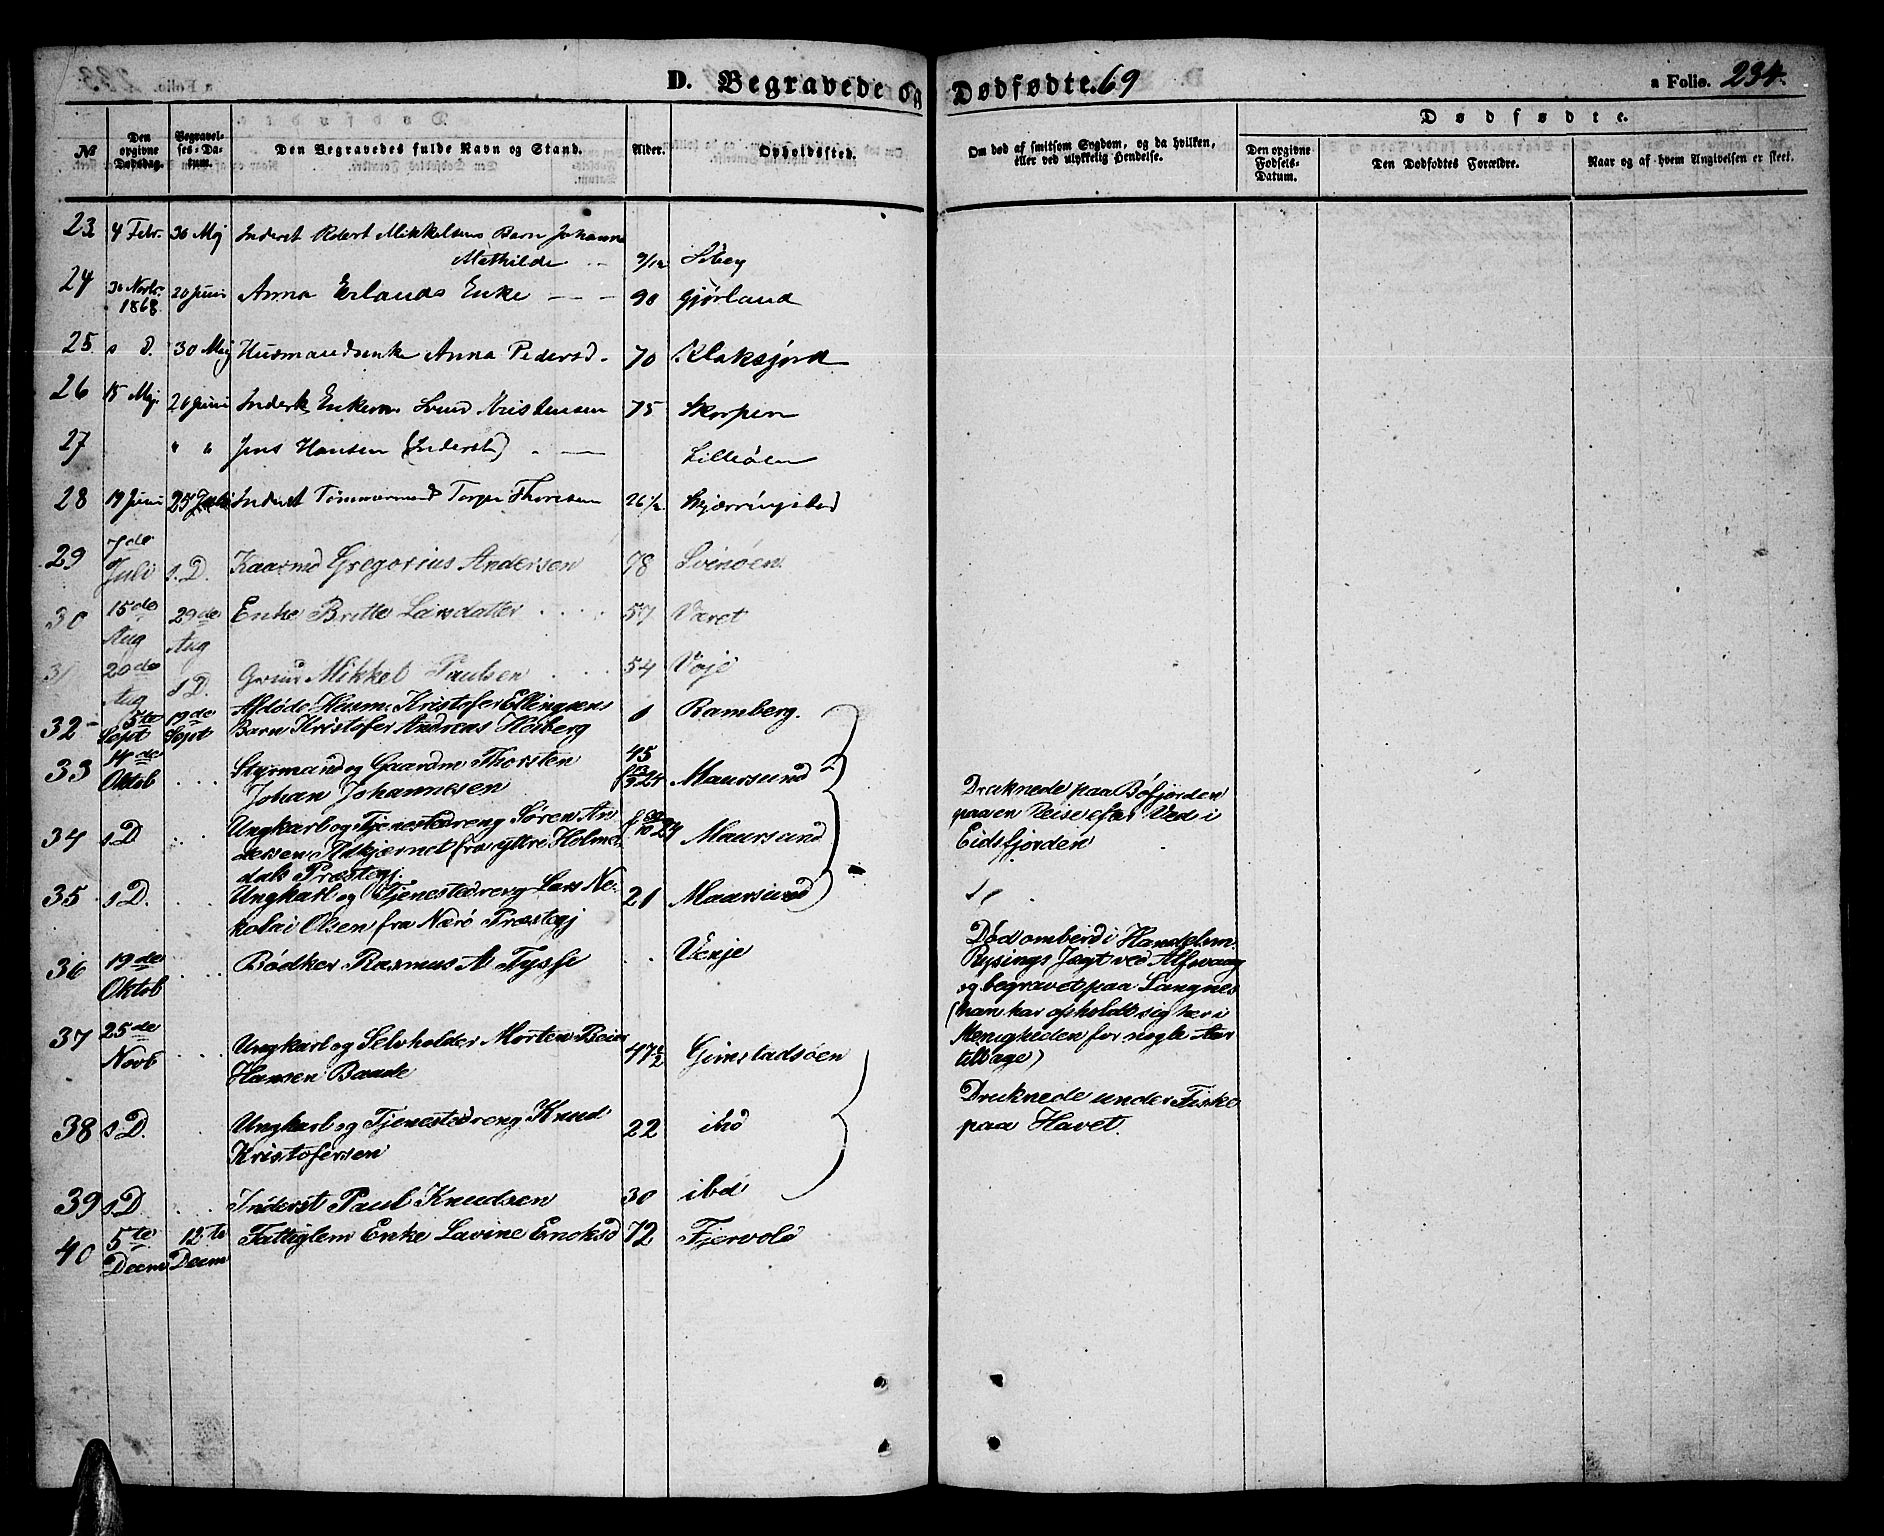 D. Begravede og Dødfødte. 69
a Folio. 234.
№
Den opgivne Dødsdag.
Begravelses-Datum.
Den Begravedes fulde Navn og Stand.
Alder.
Opholdssted.
Om død af smitsom Sygdom, og da hvilken, eller ved ulykkelig Hendelse.
Dødfødte.
Den opgivne Fødsels-Datum.
Den Dødfødtes Forældre.
Naar og af hvem Angivelsen er skeet.
23 4 Febr. 30 Mai Inderst Robert Mikkelsens Barn Johanna
Mathilde 9/12
24 30 Novbr. 1868 20 Juni Anna Erlands Enke 90 Gjørland
25 s. D. 30 Mai Husmandsenke Anna Pedersd. 70 Klaksjord
26 15 Mai 20 Juni Inderst, Enkem. 75 Skorpen
27 " " Jens Hansen (Inderst) Lilleøen
28 19 Juni 25 Juli Inderst Tømmermand Torger Thoresen 26½ Skjærringstad
29 7de Juli s.D. Kaarmd Gregorius Andersen 78 Svinøen
30 15de Aug 29de Aug Enke Britte Larsdatter 57 Været
31 20de Aug s D. Mikkel Paulsen 54 Voje
32 5te Sept 19de Sept Afdøde Husm. Kristofer Ellingsens
Barn Kristofer Andreas Heiberg 1 Ramberg.
33 4de Oktob Styrmand og Gaardm Thorsten
Johan Johannesen 45 Maursund
Druknede paa Bøfjorden
paa en Reise efter Ved i
Eidsfjorden
34 s.D Ungkarl og Tjenestedreng Søren An
dersen fra yttre Holme
dals Præstegj. Maursund
35 s.D. Ungkarl og Tjenestedreng Lars Ne-
kolai Olsen fra Nærø Præstegj 21 Maarsund
36 19de Oktob Bødker Rasmus M Tysse Venje
Død ombord i Handelsm.
Rysings Jagt ved Alfsvaag
og begravet paa Langnes
(han har opholdt sig her i
Menigheden for nogle Aar
tilbage)
37 25de Novb Ungkarl og Selvholder Morten Beier
Hansen Baade 47½ Gimstadsøen
Druknede under Fiske
paa Havet.
38 s.D. Ungkarl og Tjenestedreng Knud
Kristofersen 22 ibd
39 s.D Inderst Paul Knudsen 30 ibd
40 5te Decem 12te Decem Fattiglem Enke Lavine Enoksd 72 Fjervold